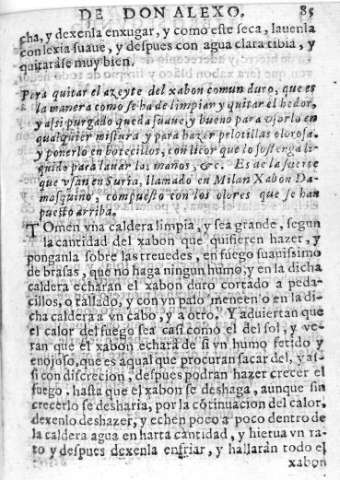 DE DON ALEXO. 85
cha, y dexenla enxugar, y como este seca, lauenla
con lexia suaue, y despues con agua clara tibia, y
quitarase muy bien.
Pera quitar el azeyte del xabon comun duro, que es
la manera como se ha de limpiar y quitar el hedor,
y assi purgado queda suaue, y bueno para vsarlo en
qualquier mistura y para hazer pelotillas olorosas
y ponerlo en botecillos, con licor que lo sostenga li-
quido para lauar las manos, &c. Es de la suerte
que vsan en Suria, llamado en Milan Xabon Da-
mosquino, compuesto con los olores que se han
puesto arriba.
TOmen vna caldera limpia, y sea grande, segun
la cantidad del xabon que quisieren hazer, y
ponganla sobre las treuedes, en fuego suauissimo
de brasas, que no haga ningun humo, y en la dicha
caldera echaran el xabon duro cortado a peda-
cillos, o tallado, y con vn palo meneen o en la di-
cha caldera a vn cabo, y a otro. Y aduiertan que
el calor del fuego sea casi como el del sol, y ve-
ran que el xabon echará de si vn humo fetido y
enojoso, que es aquel que procuran sacar del, y as-
si con discrecion, despues podran hazer crecer el
fuego, hasta que el xabon se deshaga, aunque sin
crecerlo se desharia, por la cõtinuacion del calor,
dexenlo deshazer, y echen poco a poco dentro de
la caldera agua en harta cantidad, y hierua vn ra-
to y despues dexenla enfriar, y hallaràn todo el
xabon